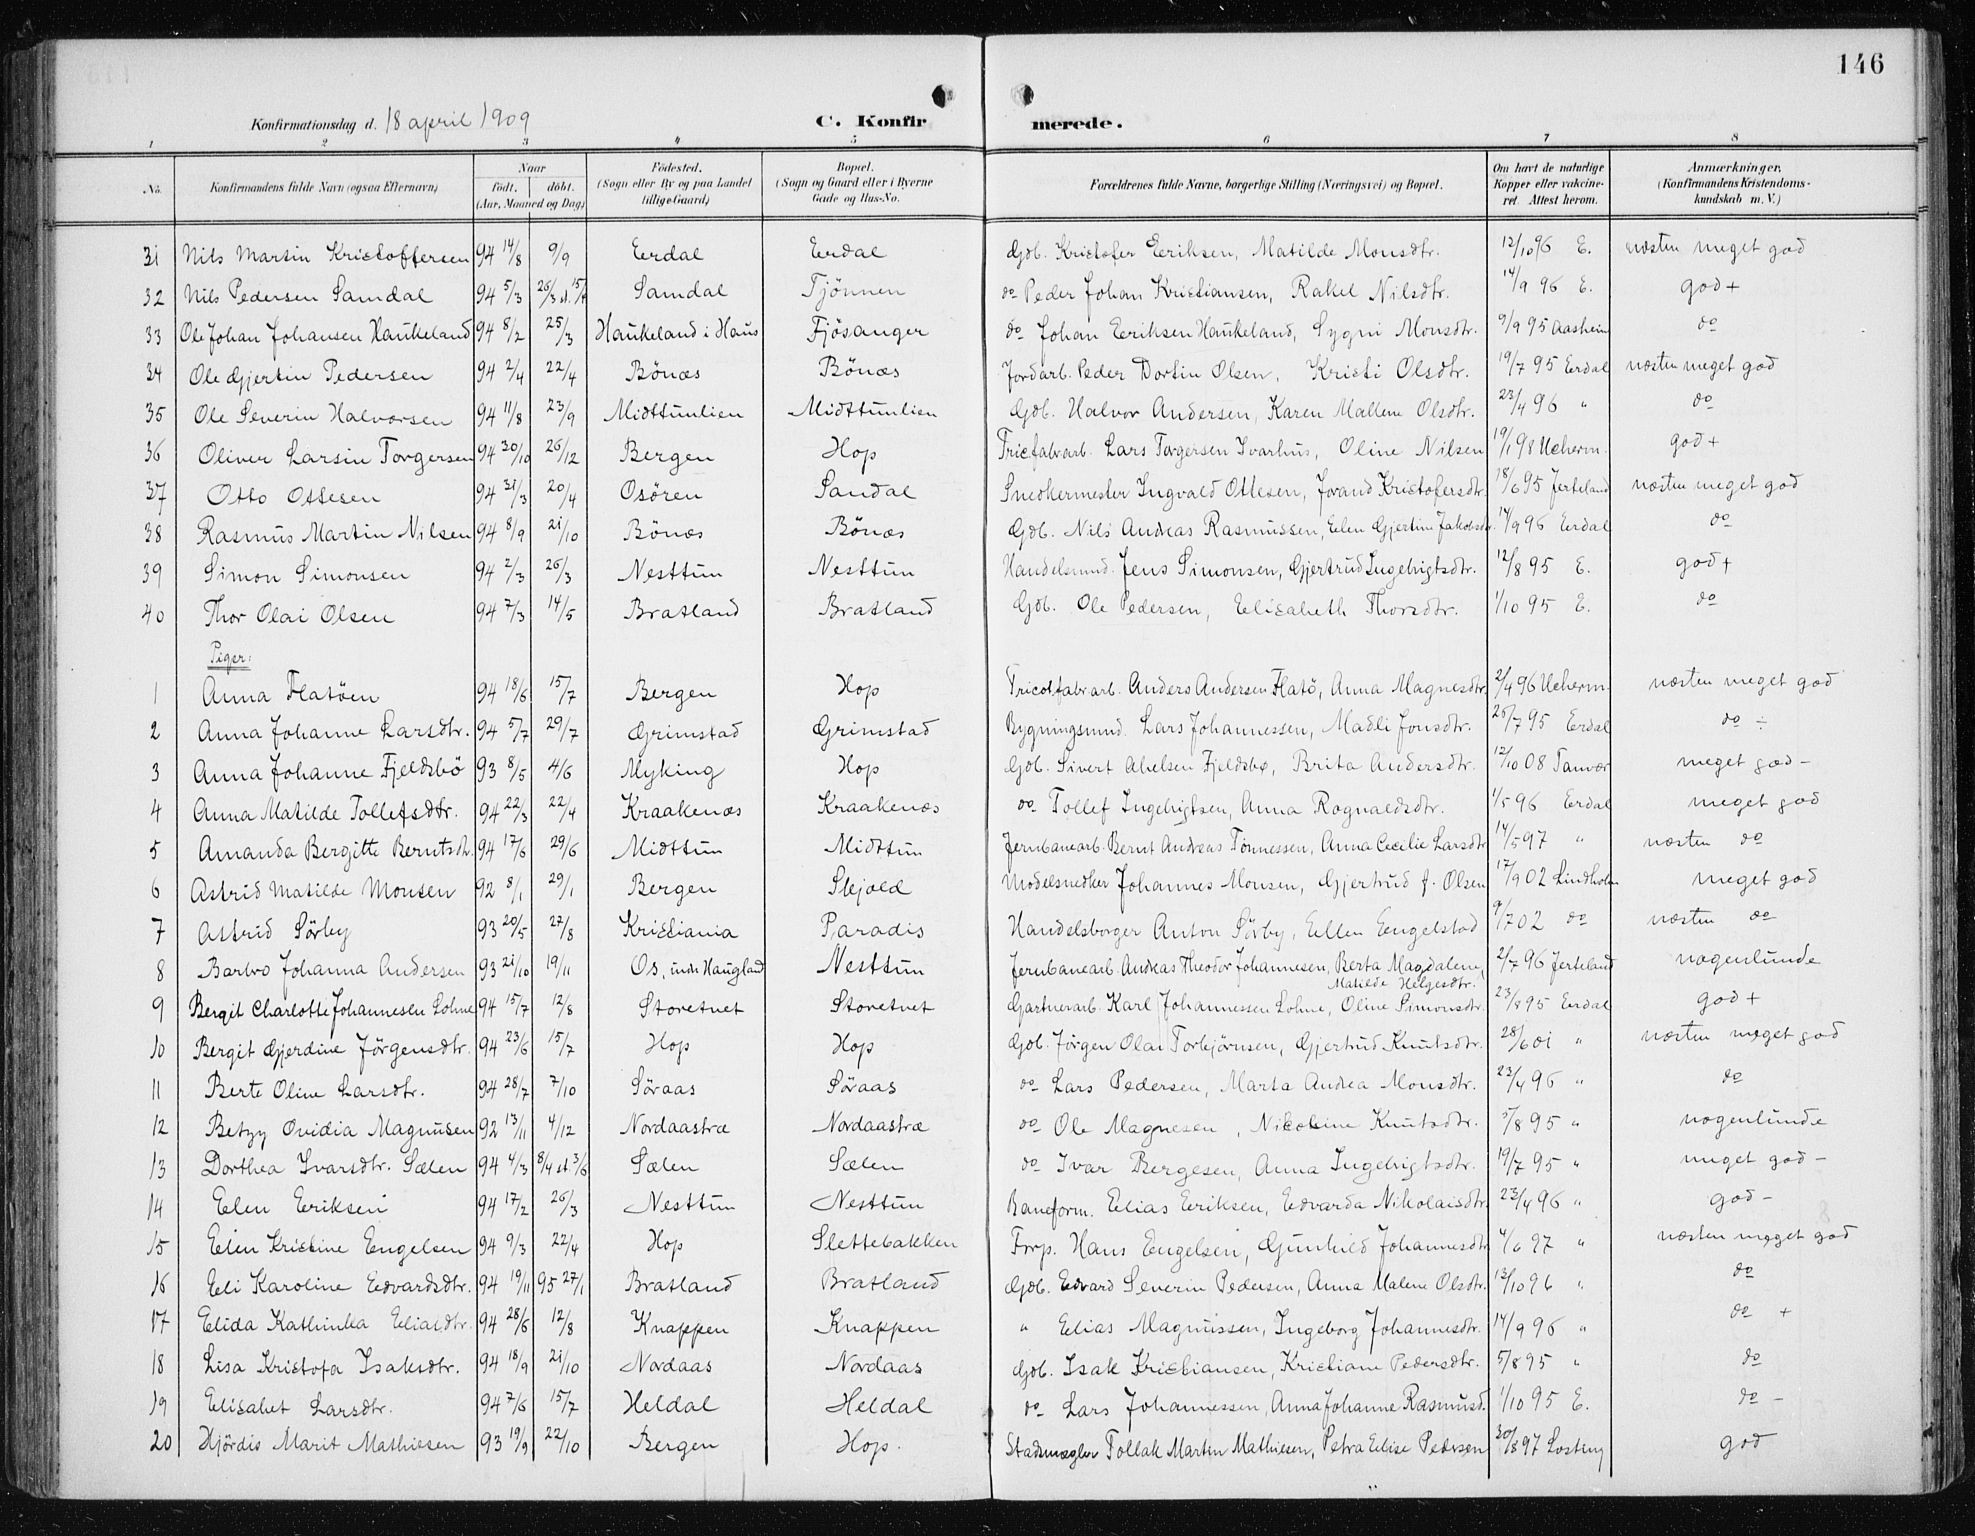 146
Konfirmationsdag d. 18 april 1909 C. Konfir merede.
1 2 3 4 5 6 7 8
No. Konfirmandens fulde Navn (ogsaa Efternavn) Naar født. døbt. (Aar, Maaned og Dag) Fødested. (Sogn eller By og paa Landet tillige Gaard) Bopæl. (Sogn og Gaard eller i Byerne Gade og Hus-No. Forældrenes fulde Navne, borgerlige Stilling (Næringsvei) og Bopæl. Om havt de naturlige Kopper eller vakcineret. Attest herom. Anmærkninger, (Konfirmandens Kristendomskundskab m. V.)
31 Nils Martin Kristoffersen 94 14/8 9/9 Eerdal Eerdal Gdb. Kristofer Eeriksen, Matilde Monsdtr. 12/10 96 E. næsten meget god
32 Nils Pedersen Samdal 94 5/3 26/3 st. 15/4 Samdal Tjönnen do Peder Johan Kristiansen, Rakel Nilsdtr. 14/9 96 E. god +
33 Ole Johan Johansen Haukeland 94 8/2 25/3 Haukeland i Haus Fjösanger do Johan Eeriksen Haukeland, Sygni Monsdtr. 9/9 95 Aasheim do
34 Ole Gjertin Pedersen 94 2/4 22/4 Bönæs Bönæs Jordarb. Peder Dortin Olsen, Kristi Olsdtr. 19/7 95 Eerdal næsten meget god
35 Ole Severin Halvorsen 94 11/8 23/9 Midttunlien Midttunlien Gdb. Halvor Andersen, Karen Mallene Olsdtr. 23/4 96 " do
36 Oliver Larsin Torgersen 94 30/10 26/12 Bergen Hop Tricfabrarb. Lars Torgersen Ivarhus, Oline Nilsen 19/1 98 Ucherm. god +
37 Otto Ottesen 94 31/3 20/4 Osören Sandal Snedkermester Ingvald Ottesen, Jorand Kristofersdtr. 18/6 95 Jerteland næsten meget god
38 Rasmus Martin Nilsen 94 8/9 21/10 Bönæs Bönæs Gdb. Nils Andreas Rasmussen, Eelen Gjertine Jakobsdtr. 14/9 96 Eerdal do
39 Simon Simonsen 94 2/3 26/3 Nesttun Nesttun Handelsmnd. Jens Simonsen, Gjertrud Ingebrigtsdtr. 12/8 95 E. god +
40 Thor Olai Olsen 94 7/3 14/5 Bratland Bratland Gdb. Ole Pedersen, Eelisabeth Thorsdtr. 1/10 95 E. do
Piger:
1 Anna Flatöen 94 18/6 15/7 Bergen Hop Tricotfabrarb. Anders Andersen Flatö, Anna Magnesdtr. 2/4 96 Ucherm. næsten meget god
2 Anna Johanne Larsdtr. 94 5/7 29/7 Grimstad Grimstad Bygningsmnd. Lars Johannessen, Madli Jonsdtr. 26/7 95 Eerdal do ÷
3 Anna Johanne Fjeldsbö 93 8/5 4/6 Myking Hop Gdb. Sivert Abelsen Fjeldsbø, Brita Andersdtr. 12/10 08 Tanvær meget god -
4 Anna Matilde Tollefsdtr. 94 22/3 22/4 Kraakenæs Kraakenæs do Tollef Ingebrigtsen, Anna Rognaldsdtr. 1/5 96 Eerdal meget god
5 Amanda Bergitte Berntsdtr. 94 17/6 29/6 Midttun Midttun Jernbanearb. Bernt Andreas Tönnessen, Anna Cecilie Larsdtr 14/5 97 " næsten do
6 Astrid Matilde Monsen 92 8/1 29/1 Bergen Skjold Modelsnedker Johannes Monsen, Gjertrud f. Olsen 17/9 02 Lindholm meget god
7 Astrid Sörby 93 20/5 27/8 Kristiania Paradis Handelsborger Anton Sörby, Eellen Eengelstad 9/7 02 do næsten do
8 Barbro Johanna Andersen 93 21/10 19/11 Os, indr. Haugland Nesttun Jernbanearb. Andreas Theodor Johannesen, Berta Magdalene, Matilde Helgesdtr. 2/7 96 Jerteland nogenlunde
9 Bergit Charlotte Johannesen Lohne 94 15/7 12/8 Storetvet Storetvet Gartnerarb. Karl Johannessen Lohne, Oline Simonsdtr. 23/8 95 Eerdal god +
10 Bergit Gjerdine Jörgensdtr. 94 23/6 15/7 Hop Hop Gdb. Jörgen Olai Torbjörnsen, Gjertrud Knutsdtr. 28/6 01 " næsten meget god
11 Berte Oline Larsdtr. 94 28/7 7/10 Söraas Söraas do Lars Pedersen, Marta Andrea Monsdtr. 23/4 96 " do
12 Betzy Ovidia Magnusen 92 13/11 4/12 Nordaastræ Nordaastræ do Ole Magnesen, Nikoline Knutsdtr. 5/8 95 " nogenlunde
13 Dorthea Ivarsdtr. Sælen 94 4/3 8/4 st. 3/6 Sælen Sælen do Ivar Bergesen, Anna Ingebrigtsdtr. 19/7 95 " meget god -
14 Eelen Eeriksen 94 17/2 26/3 Nesttun Nesttun Baneform. Eelias Eeriksen, Edvarda Nikolaisdtr. 23/4 96 " god -
15 Eelen Kristine Engelsen 94 9/3 22/4 Hop Slettebakken Forp. Hans Engelsen, Gunhild Johannesdtr 4/6 97 " næsten meget god
16 Eeli Karoline Eedvardsdtr. 94 19/11 95 27/1 Bratland Bratland Gdb. Edvard Severin Pedersen, Anna Malene Olsdtr. 13/10 96 " do
17 Eelida Kathinka Eeliasdtr. 94 28/6 12/8 Knappen Knappen " Eelias Magnussen, Ingeborg Johannesdtr. 14/9 96 " do +
18 Lisa Kristofa Isaksdtr. 94 18/9 21/10 Nordaas Nordaas Gdb. Isak Kristiansen, Kristiane Pedersdtr. 5/8 95 " do
19 Eelisabet Larsdtr. 94 7/6 15/7 Heldal Heldal do Lars Johannessen, Anna Johanne Rasmusd. 1/10 95 E. do -
20 Hjördis Marit Mathiesen 93 19/9 22/10 Bergen Hop. Stadsmægler Tollak Martin Mathiesen, Petra Eelise Pedersen 30/8 97 Losting god